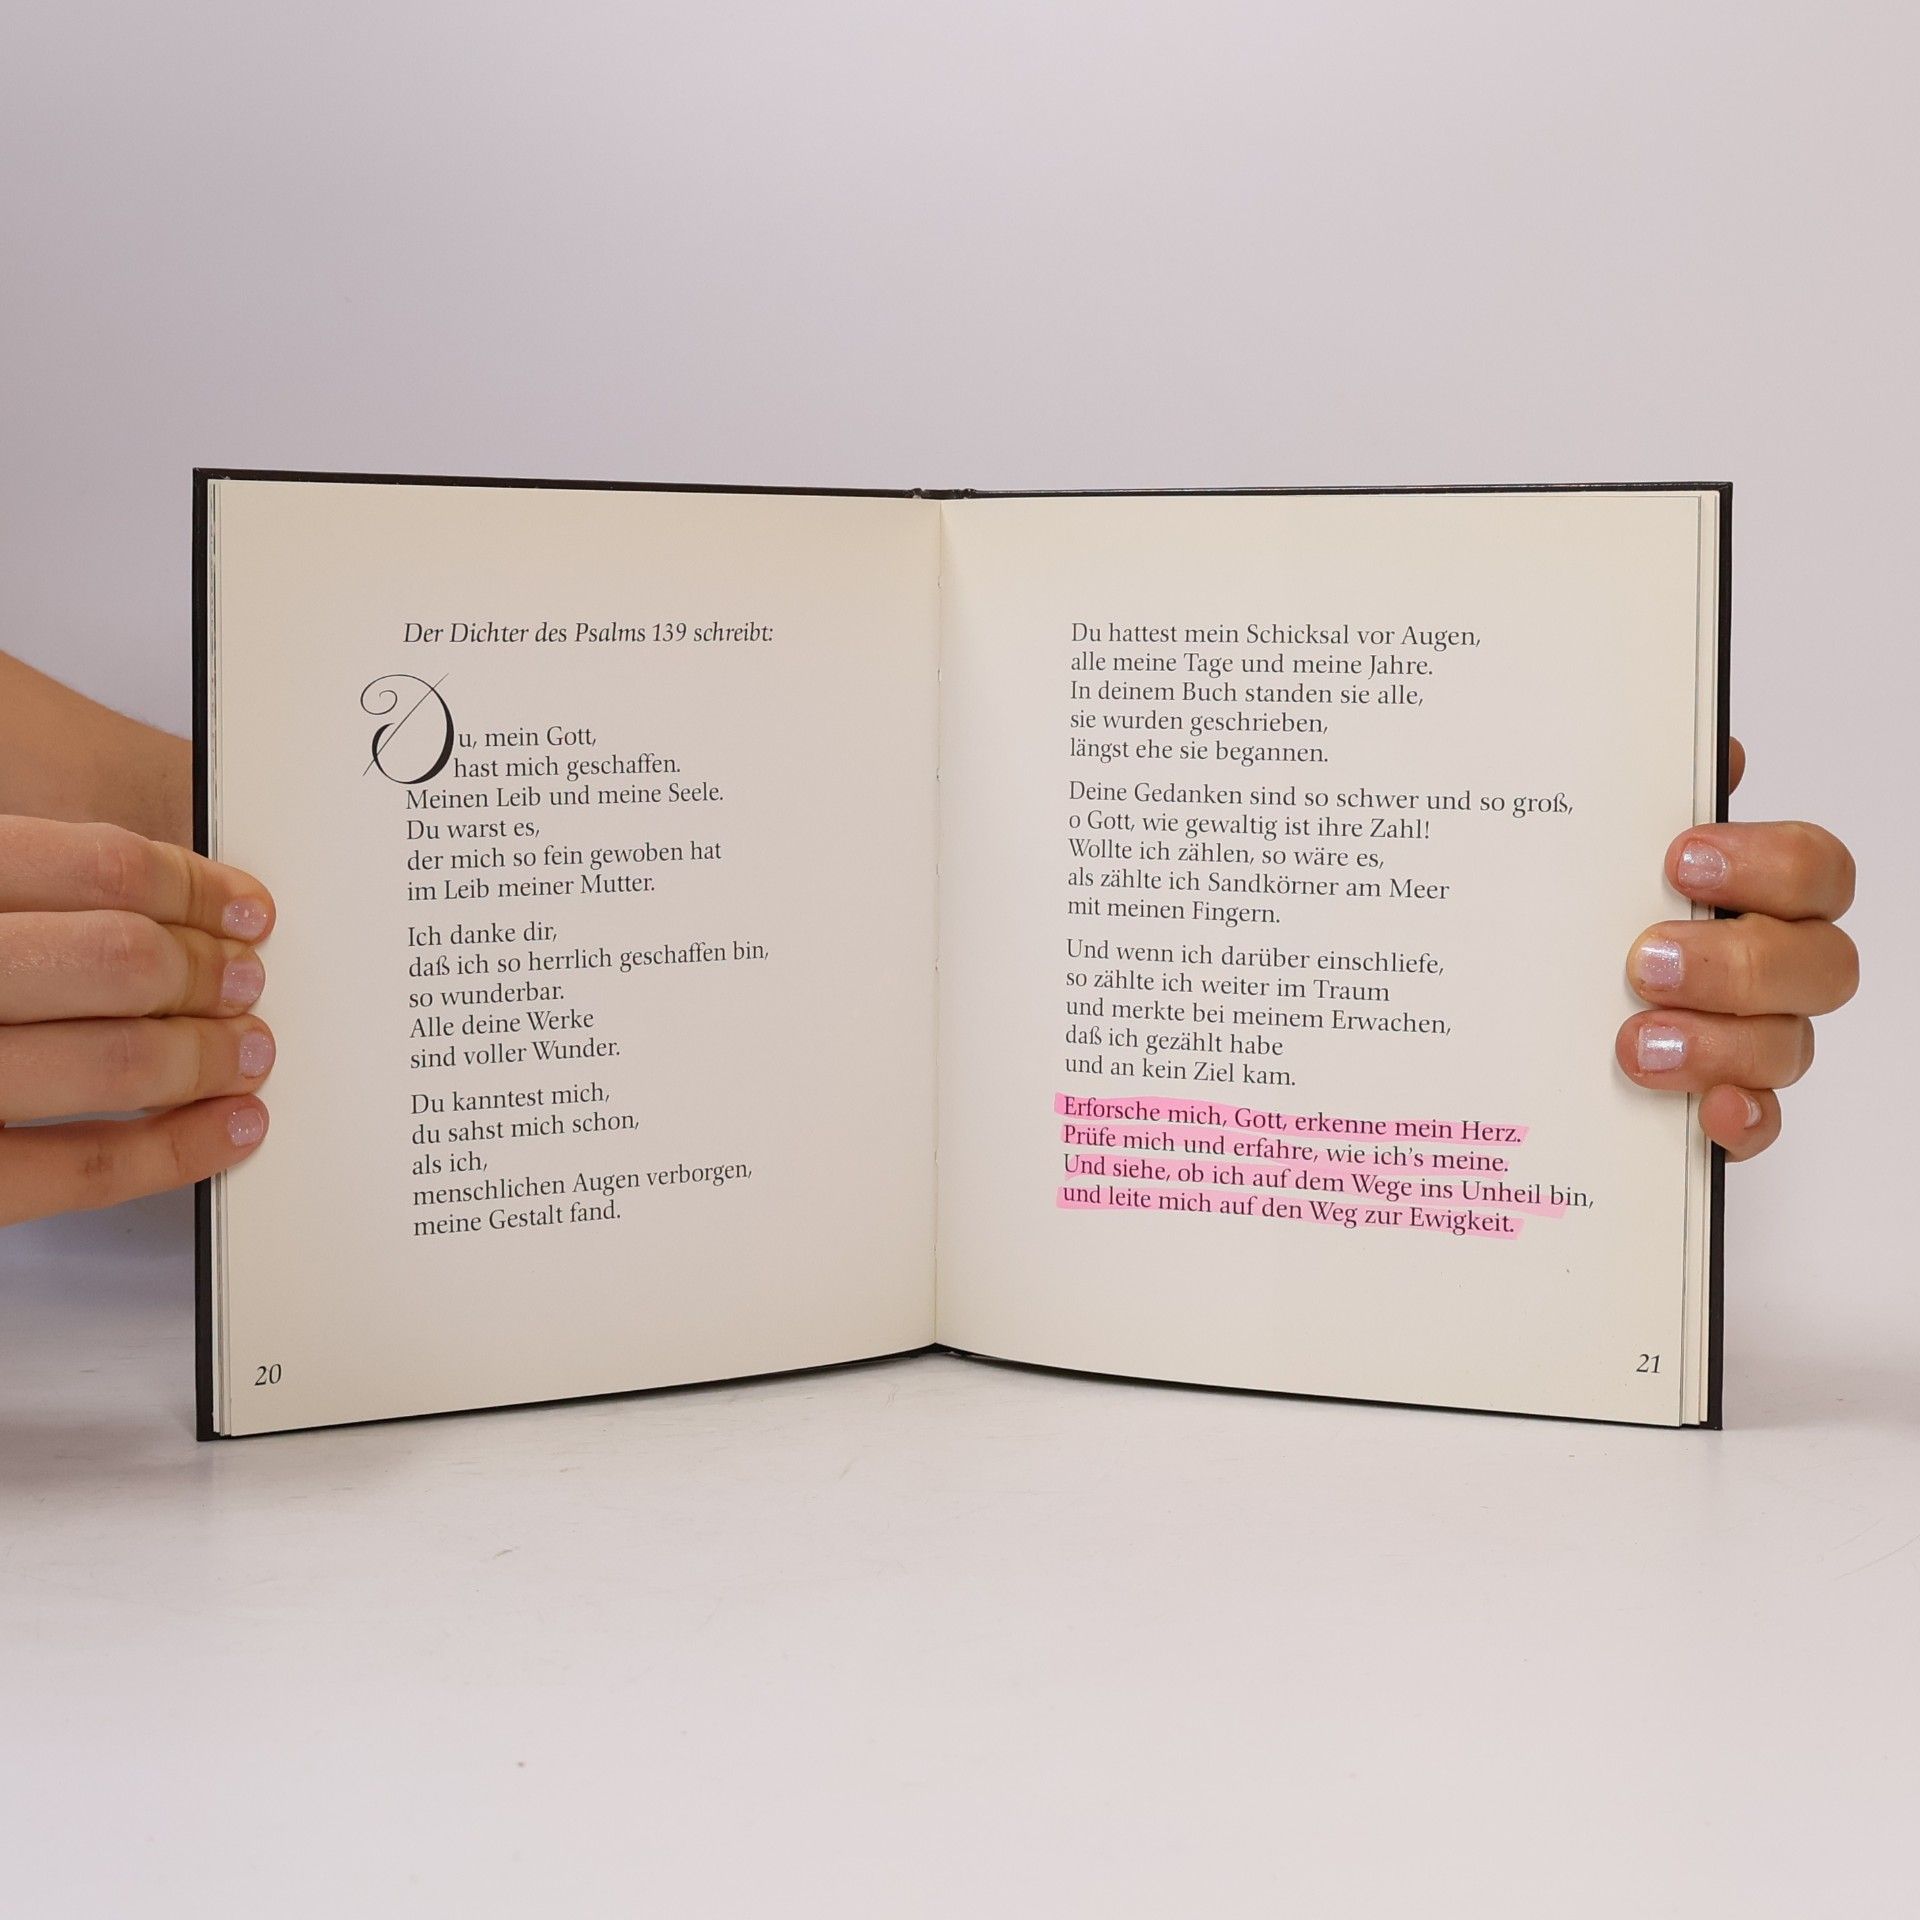 Der Dichter des Psalms 139 schreibt:
Du, mein Gott,
hast mich geschaffen.
Meinen Leib und meine Seele.
Du warst es,
der mich so fein gewoben hat
im Leib meiner Mutter.
Ich danke dir,
daß ich so herrlich geschaffen bin,
so wunderbar.
Alle deine Werke
sind voller Wunder.
Du kanntest mich,
du sahst mich schon,
als ich,
menschlichen Augen verborgen,
meine Gestalt fand.
20
Du hattest mein Schicksal vor Augen,
alle meine Tage und meine Jahre.
In deinem Buch standen sie alle,
sie wurden geschrieben,
längst ehe sie begannen.
Deine Gedanken sind so schwer und so groß,
o Gott, wie gewaltig ist ihre Zahl!
Wollte ich zählen, so wäre es,
als zählte ich Sandkörner am Meer
mit meinen Fingern.
Und wenn ich darüber einschliefe,
so zählte ich weiter im Traum
und merkte bei meinem Erwachen,
daß ich gezählt habe
und an kein Ziel kam.
Erforsche mich, Gott, erkenne mein Herz.
Prüfe mich und erfahre, wie ich's meine.
Und siehe, ob ich auf dem Wege ins Unheil bin,
und leite mich auf den Weg zur Ewigkeit.
21